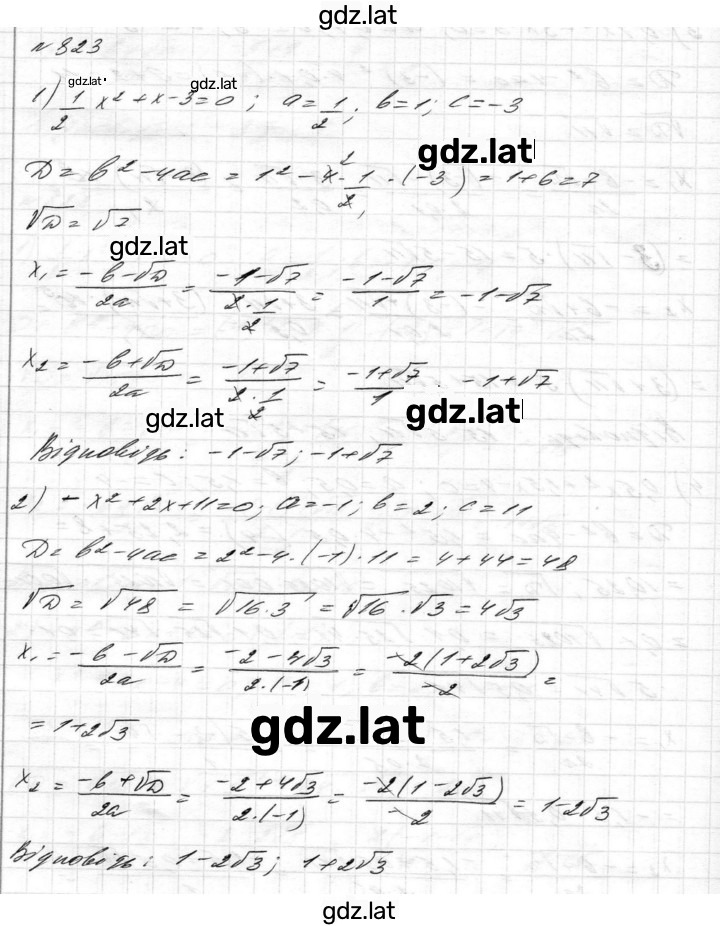 gdz.lat
№ 823
gdz.lat
1) 1/2 x² + x - 3 = 0 ; a = 1/2 ; b = 1 ; c = -3
gdz.lat
gdz.lat
D = b² - 4ac = 1² - 4 · 1/2 · (-3) = 1 + 6 = 7
√D = √7
gdz.lat
x₁ = (-b - √D)/2a = (-1 - √7)/(2 · 1/2) = (-1 - √7)/1 = -1 - √7
x₂ = (-b + √D)/2a = (-1 + √7)/(2 · 1/2) = (-1 + √7)/1 · -1 + √7
gdz.lat
gdz.lat
Відповідь: -1 - √7 ; -1 + √7
2) - x² + 2x + 11 = 0 ; a = -1 ; b = 2 ; c = 11
D = b² - 4ac = 2² - 4 · (-1) · 11 = 4 + 44 = 48
√D = √48 = √16·3 = √16 · √3 = 4√3
x₁ = (-b - √D)/2a = (-2 - 4√3)/2·(-1) = -2(1 + 2√3)/-2 =
= 1 + 2√3
gdz.lat
x₂ = (-b + √D)/2a = (-2 + 4√3)/2·(-1) = -2(1 - 2√3)/-2 = 1 - 2√3
Відповідь: 1 - 2√3 ; 1 + 2√3
gdz.lat